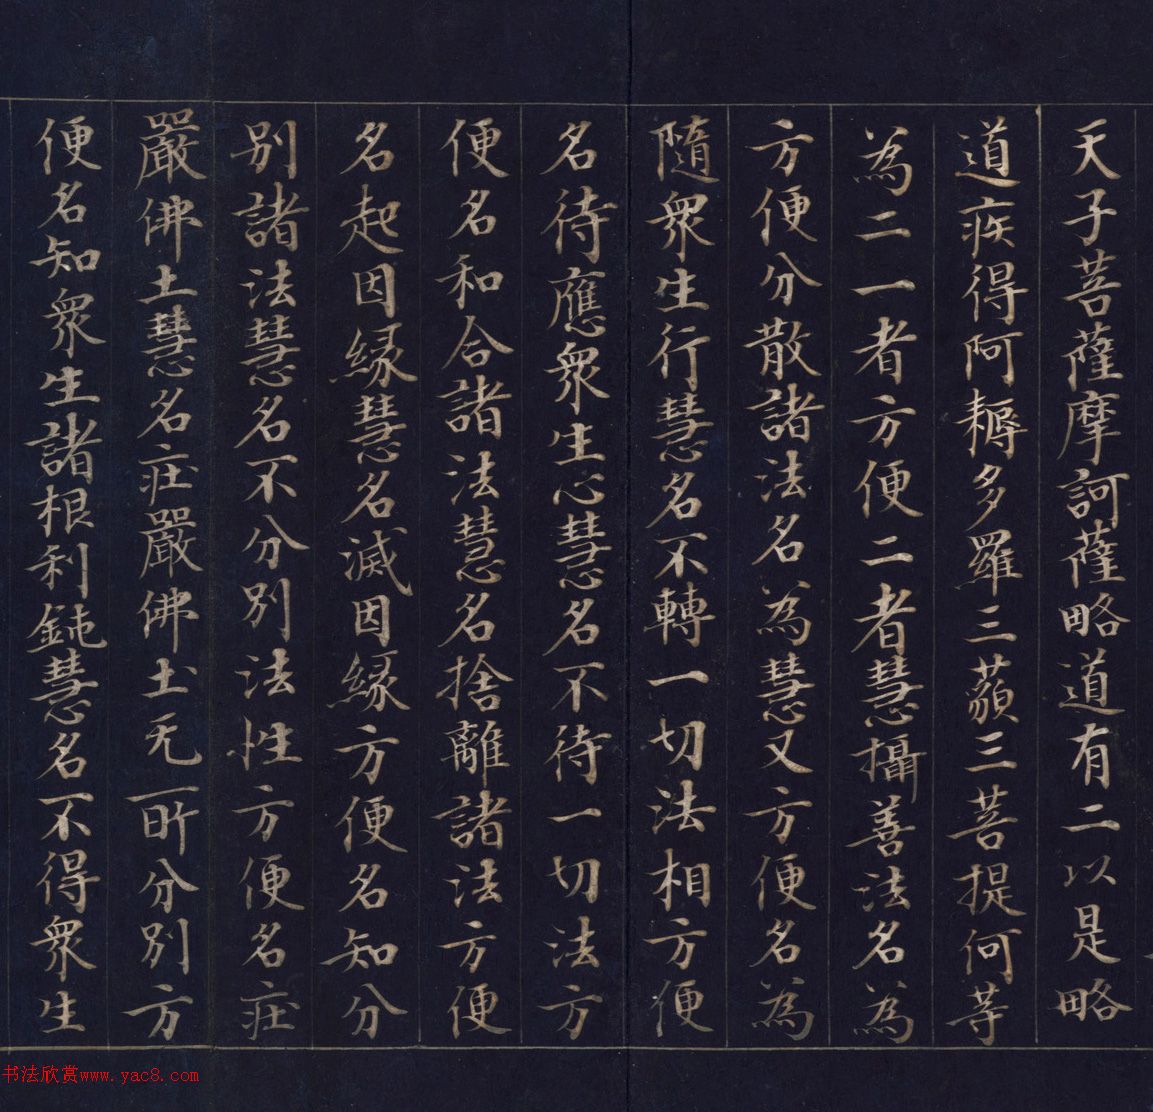 天子菩薩摩訶薩略道有二以是略
道疾得阿耨多羅三藐三菩提何等
為二一者方便二者慧攝善法名為
方便分散諸法名為慧又方便名為
隨衆生行慧名不轉一切法相方便
名待應衆生心慧名不待一切法方
便名和合諸法慧名捨離諸法方便
名起因緣慧名滅因緣方便名知分
別諸法慧名不分別法性方便名莊
嚴佛土慧名莊嚴佛土无所分別方
便名知衆生諸根利鈍慧名不得衆生
书法欣赏www.yac8.com